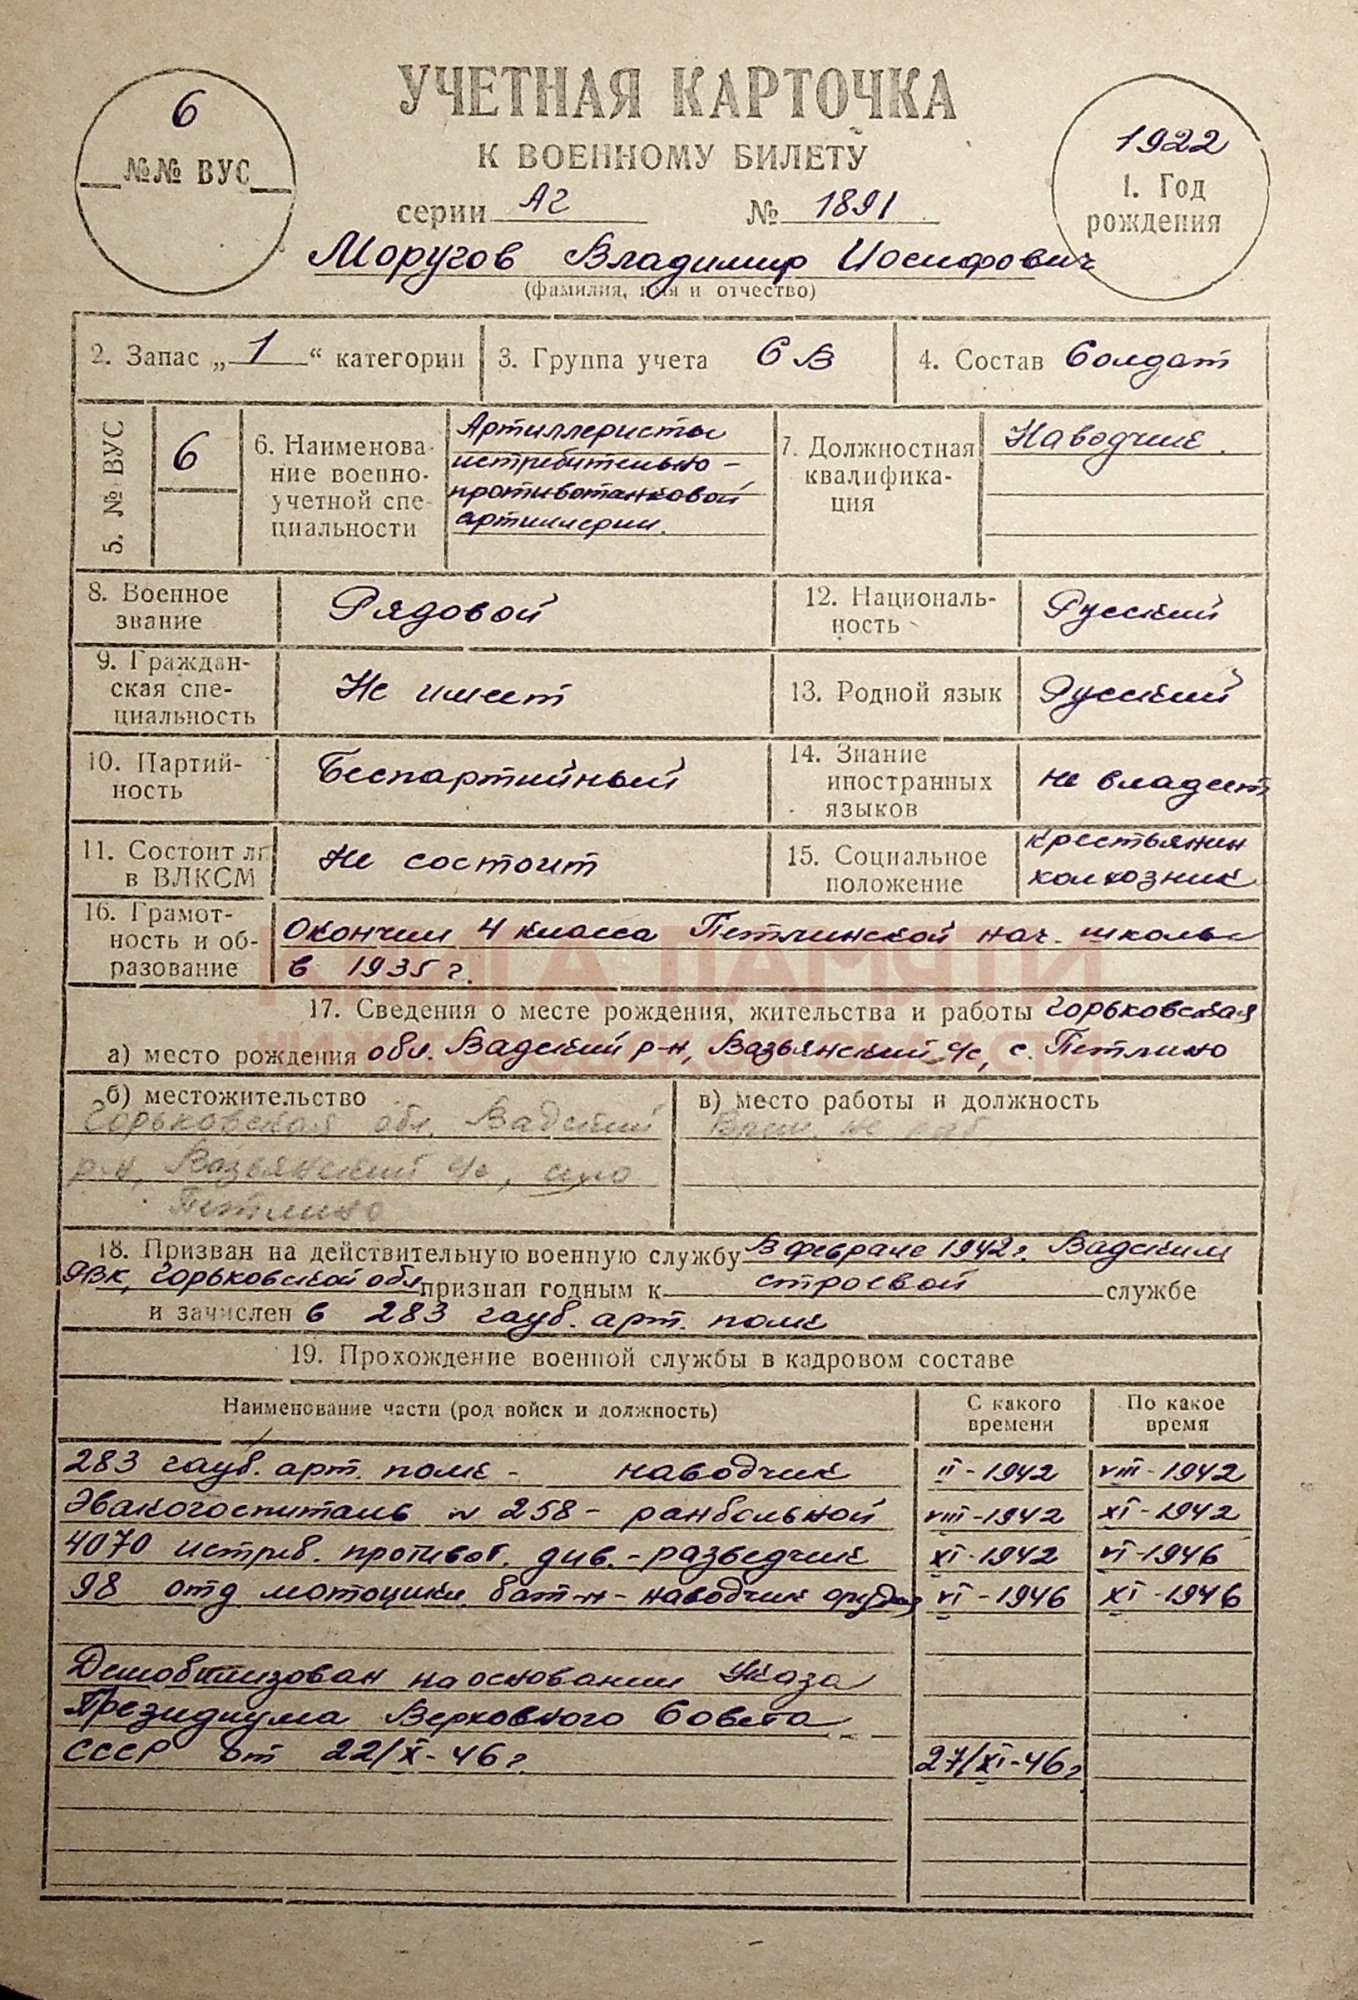 УЧЕТНАЯ КАРТОЧКА
К ВОЕННОМУ БИЛЕТУ
6
№№ ВУС
серии АГ № 1891
1922
1. Год
рождения
Моругов Владимир Иосифович
(фамилия, имя и отчество)
2. Запас „1“ категории
3. Группа учета СВ
4. Состав Солдат
5. № ВУС
6
6. Наименова-
ние военно-
учетной спе-
циальности
Артиллеристы
истребительно-
противотанковой
артиллерии.
7. Должностная
квалифика-
ция
Наводчик.
8. Военное
звание
Рядовой
12. Националь-
ность
Русский
9. Граждан-
ская спе-
циальность
Не имеет
13. Родной язык
Русский
10. Партий-
ность
Беспартийный
14. Знание
иностранных
языков
не владеет
11. Состоит ли
в ВЛКСМ
Не состоит
15. Социальное
положение
крестьянин
колхозник
16. Грамот-
ность и об-
разование
Окончил 4 класса Петлинской нач. школы
в 1935 г.
КНИГА ПАМЯТИ
НИЖЕГОРОДСКОЙ ОБЛАСТИ
17. Сведения о месте рождения, жительства и работы Горьковская
а) место рождения обл. Вадский р-н, Вазьянский с/с, с. Петлино
б) местожительство
Горьковская обл. Вадский
р-н, Вазьянский с/с, село
Петлино
в) место работы и должность
Врем. не раб.
18. Призван на действительную военную службу В феврале 1942 г. Вадским
РВК, Горьковской обл признан годным к строевой службе
и зачислен в 283 гауб. арт. полк
19. Прохождение военной службы в кадровом составе
Наименование части (род войск и должность)
С какого
времени
По какое
время
283 гауб. арт. полк - наводчик II-1942 VIII-1942
Эвакогоспиталь № 258 - ранбольной VIII-1942 XI-1942
4070 истреб. противот. див. - разведчик XI-1942 VI-1946
98 отд мотоцикл. бат-н - наводчик орудия VI-1946 XI-1946
Демобилизован на основании Указа
Президиума Верховного Совета
СССР от 22/X-46 г. 27/XI-46 г